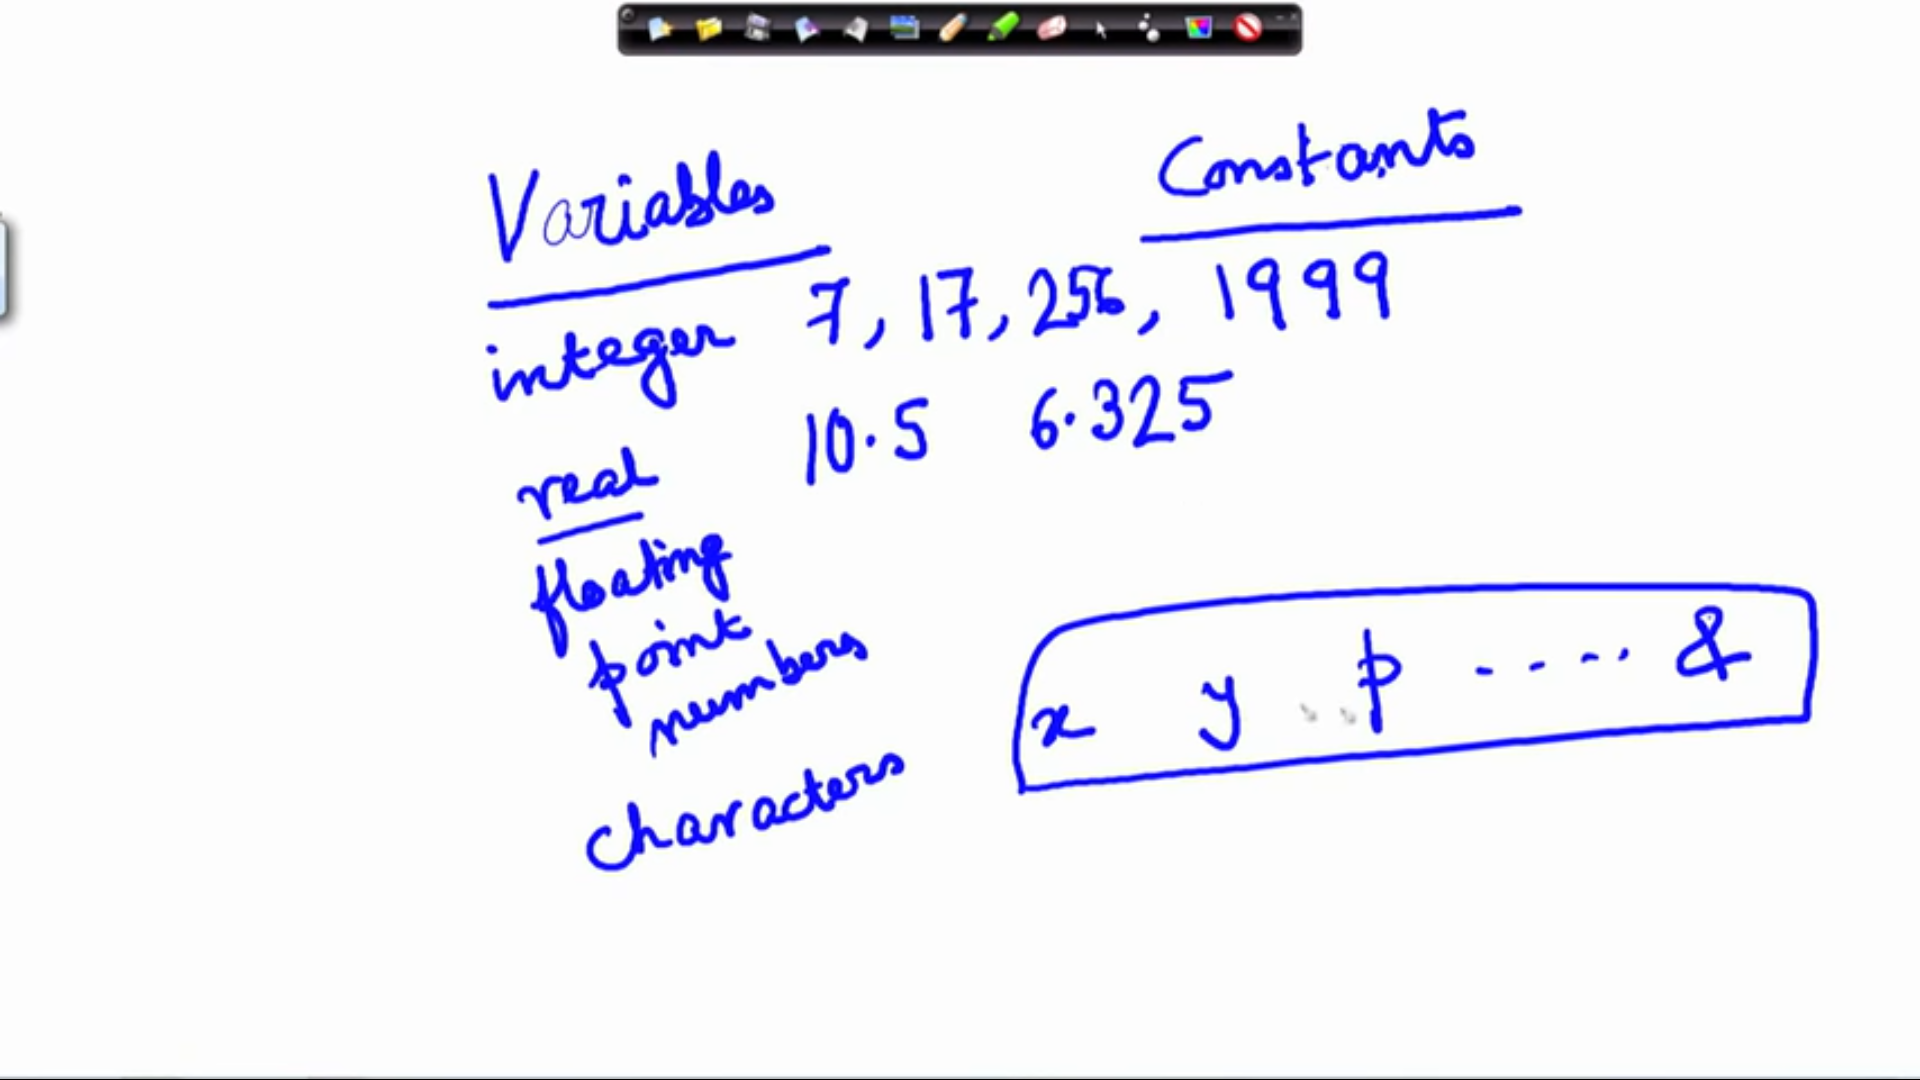 Variables Constants
integer 7, 17, 256, 1999
real 10.5 6.325
floating
point
numbers
characters x y p ..... &